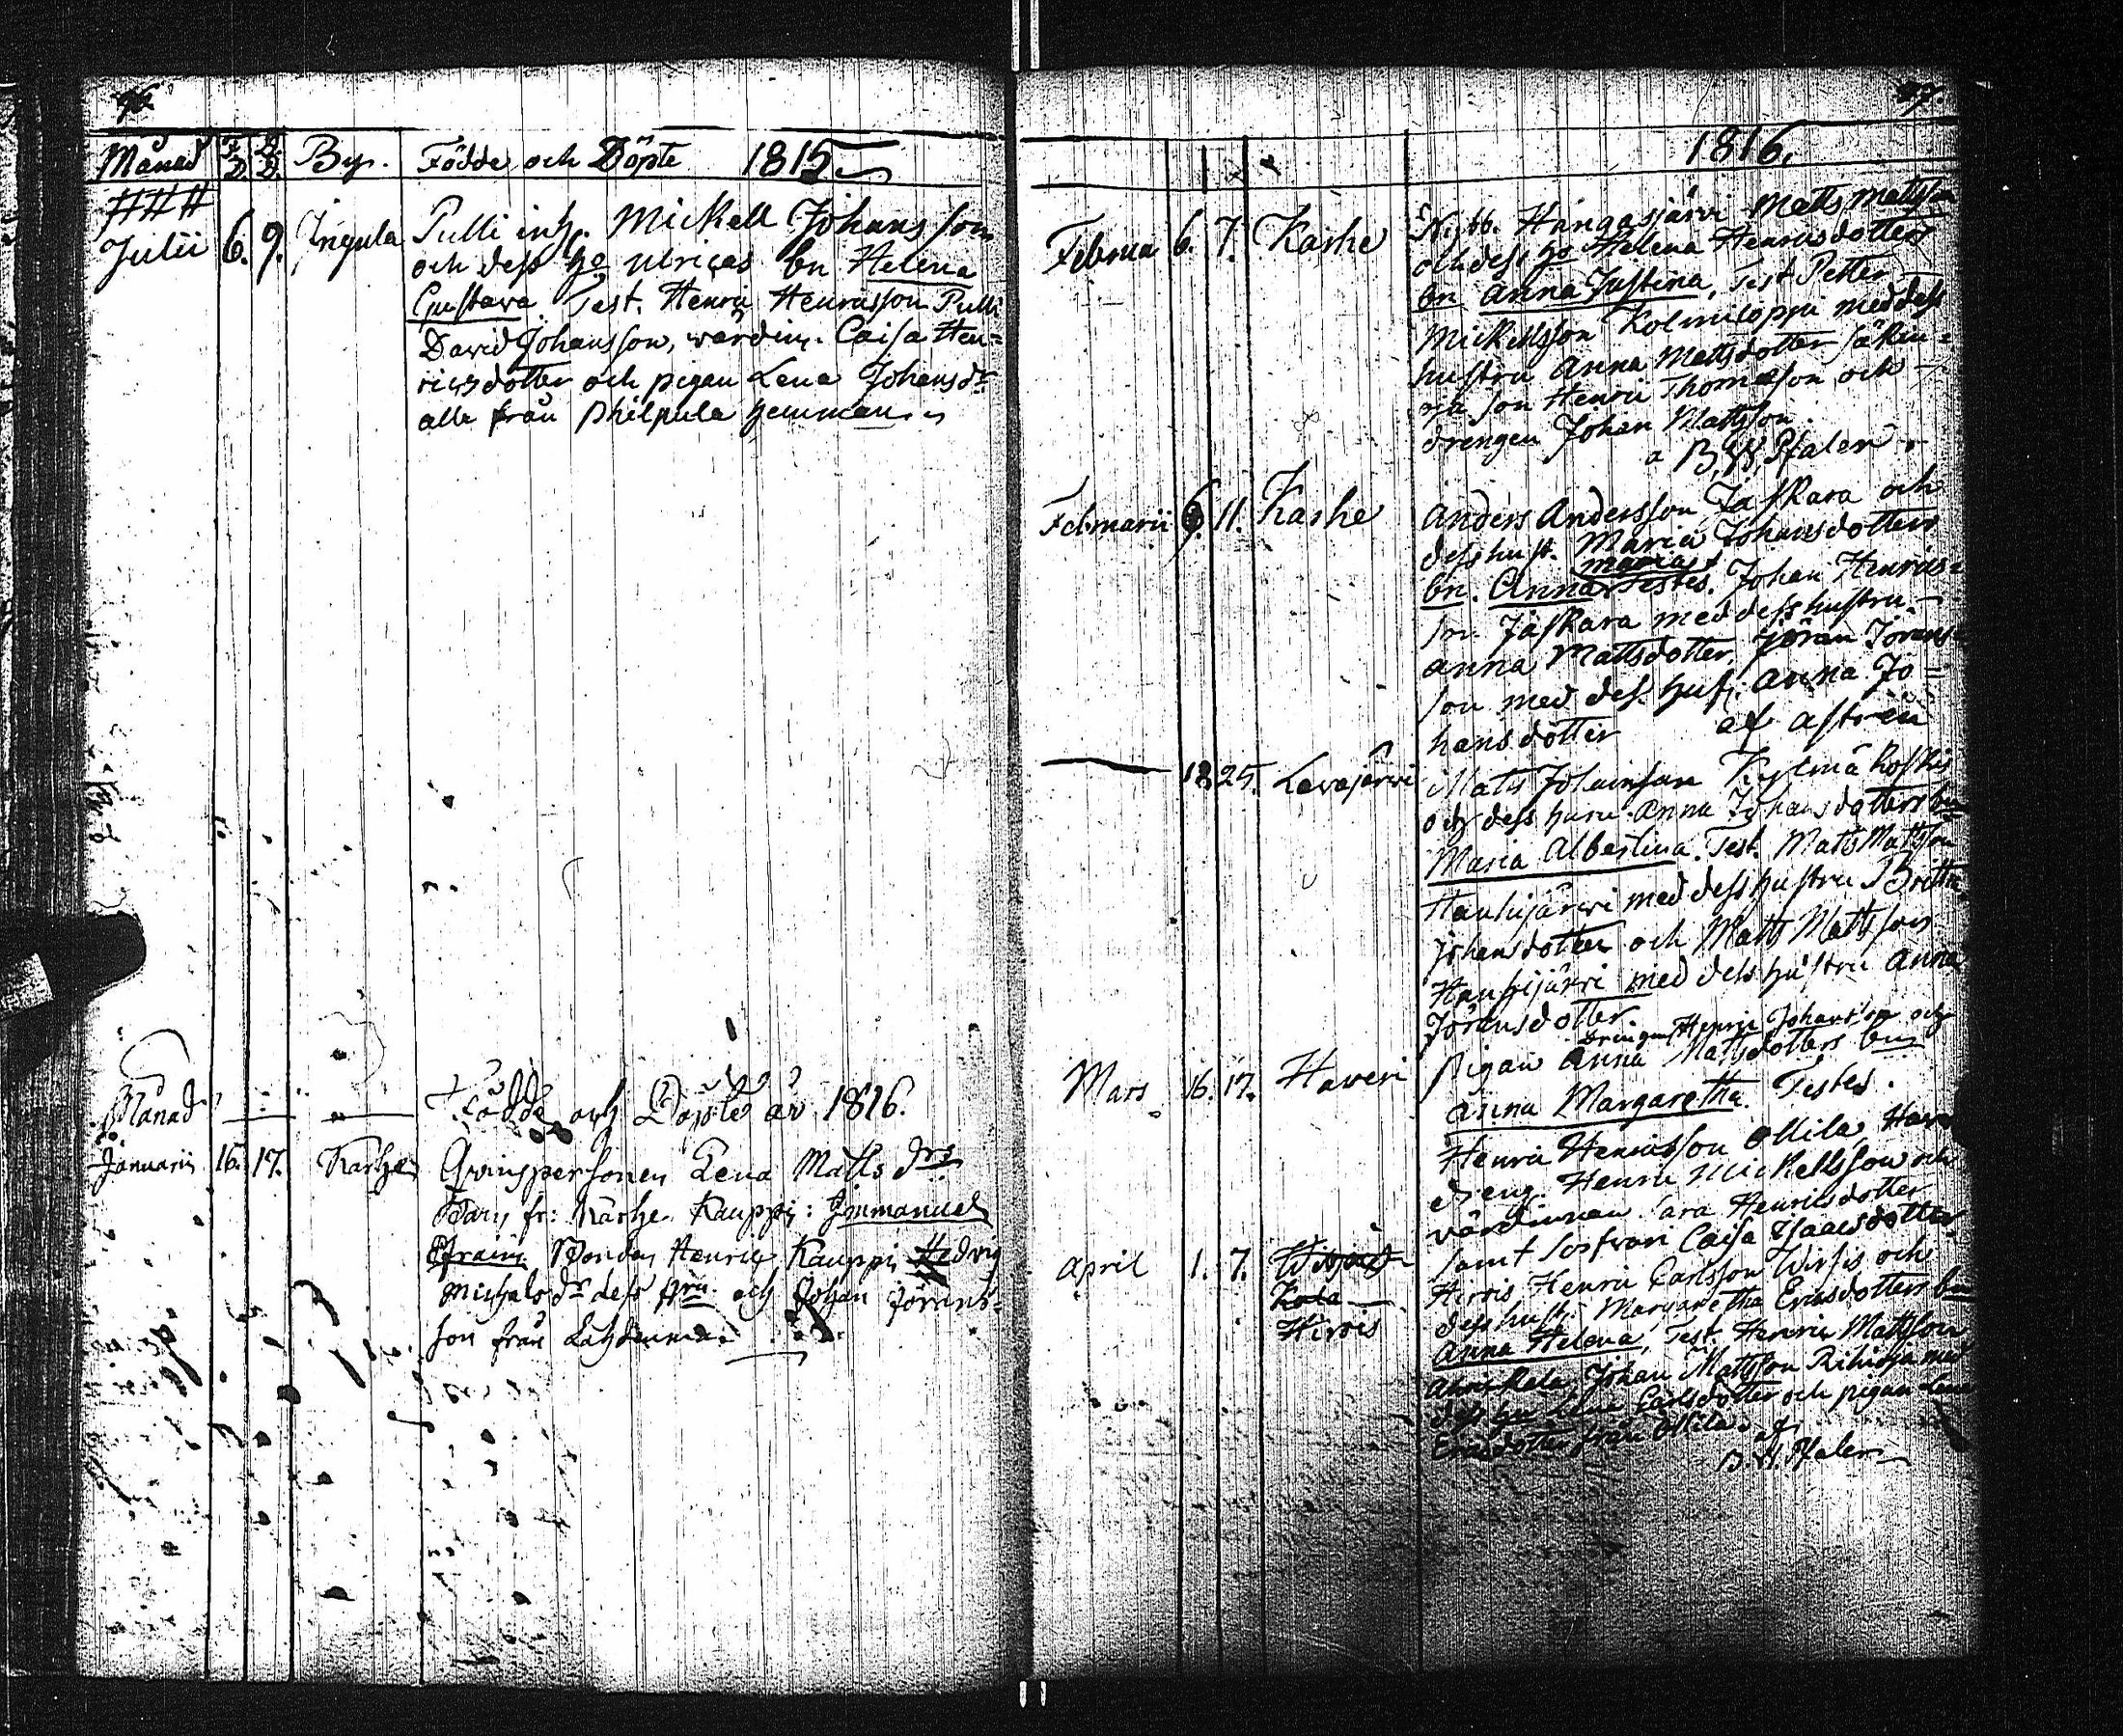 96.
Månad F. D. D. D. By. Födde och Döpte 1815
Julii 6. 9. Ingula Pulli inh. Mickell Johansson
och dess ho Ulricas bn Helena
Gustava. Test. Henric Henricsson Pulli
David Johansson, wardin. Caisa Hen-
ricsdotter och pigan Lena Johansdr
alla från Philpula hemman.
Månad Födde och Döpte år 1816.
Januarii 16. 17. Karhe Qvinspersonen Lena Matts drs
Barn fr: Karhe Kauppi: Immanuel
Efraim Bonden Henric Kauppi Hedvig
Michals dr dess hru och Johan Görans-
son från
97.
1816.
Februa 6. 7. Karhe Nybb. Hangasjärvi Matts Mattsson
och dess ho Helena Henricsdotters
bn Anna Justina, Test Petter
Mickelsson Kolmiloppi med dess
hustru Anna Mattsdotter
son Henric Thomasson och
drengen Johan Mattsson.
a B. H. Pfaler.
Februarii 9. 11. Karhe Anders Andersson Jaskara och
dess hust. Maria Johansdotters
maria
bn. Anna Testes. Johan Henrics-
son Jaskara med dess hustru
Anna Mattsdotter, Jöran Jörans-
son med dess hust. Anna Jo-
hansdotter af Astrén
18. 25. Lavajärvi Matts Johansson Kylmä
och dess huru Anna Johansdotters bn
Maria Albertina. Test. Matts Mattsson
Hauhijärvi med dess hustru Britta
Johansdotter och Matts Mattsson
Hauhijärvi med dess hustru Anna
Jöransdotter
Drengen Henric Johansson och
Mars 16. 17. Haveri Pigan Anna Mattsdotters bn
Anna Margaretha. Testes.
Henric Henricsson Ollila Have
dreng. Henric Mickelsson och
värdinnan Sara Henricsdotter
samt Caisa Isaacsdotter
April 1. 7. Kota Hirvis Henric Carlsson och
Hirvis dess hust. Margaretha Ericsdotters bn
Anna Helena, Test. Henric Mattsson
Johan Mattsson med
dess hu Lena Carlsdotter och pigan Lena
Ericsdotter från Ollila. af
B. H. Pfaler